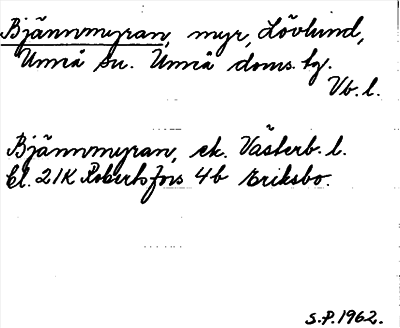 Bjännmyran, myr, Lövlund,
Umeå sn. Umeå doms. hg.
Vb. l.
Bjännmyran, ek. Västerb. l.
Bl. 21K Robertsfors 4b Eriksbo.
S.P. 1962.